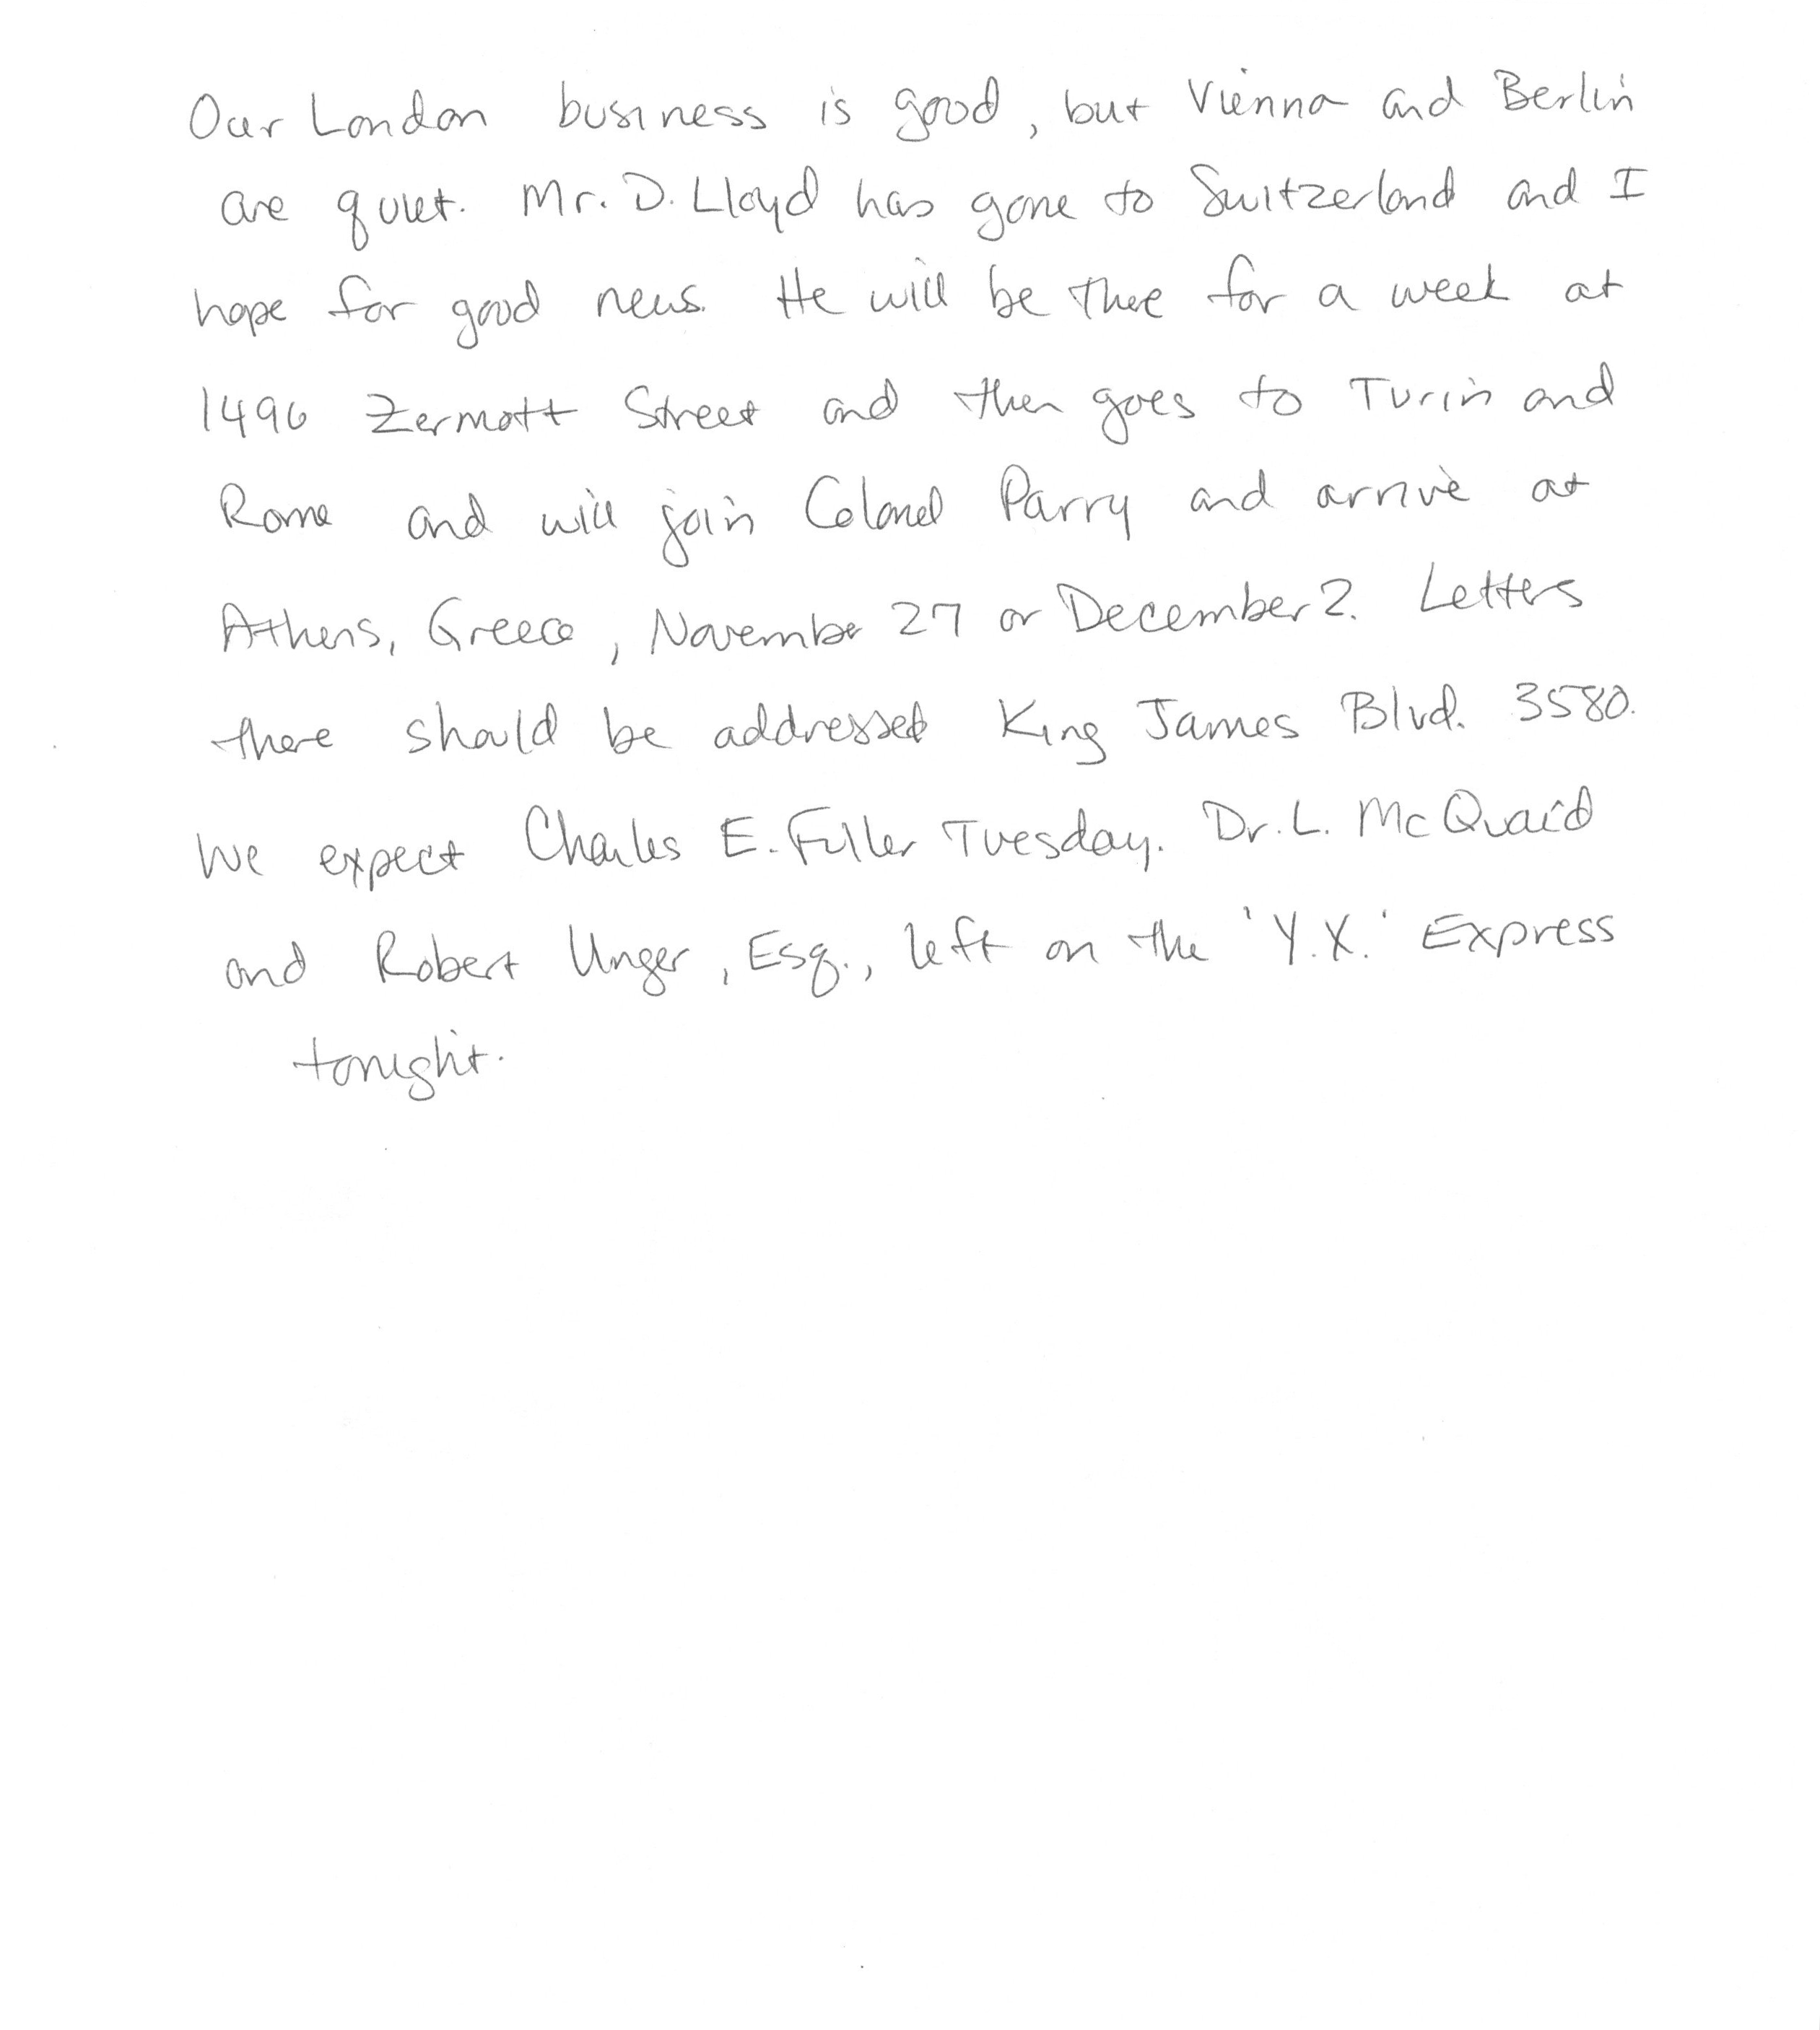 Our London business is good, but Vienna and Berlin
are quiet. Mr. D. Lloyd has gone to Switzerland and I
hope for good news. He will be there for a week at
1496 Zermott Street and then goes to Turin and
Rome and will join Colonel Parry and arrive at
Athens, Greece, November 27 or December 2. Letters
there should be addressed King James Blvd. 3580.
We expect Charles E. Fuller Tuesday. Dr. L. McQuaid
and Robert Unger, Esq., left on the 'Y.X.' Express
tonight.